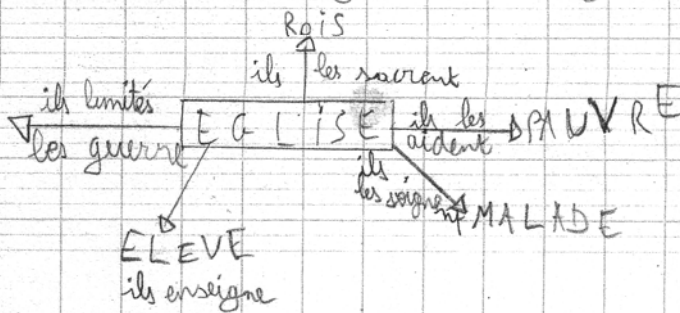 ROIS
ils les sacrent
ils limités
les guerre
EGLISE
ils les
aident
PAUVRE
ils
les soignent
MALADE
ELEVE
ils enseigne